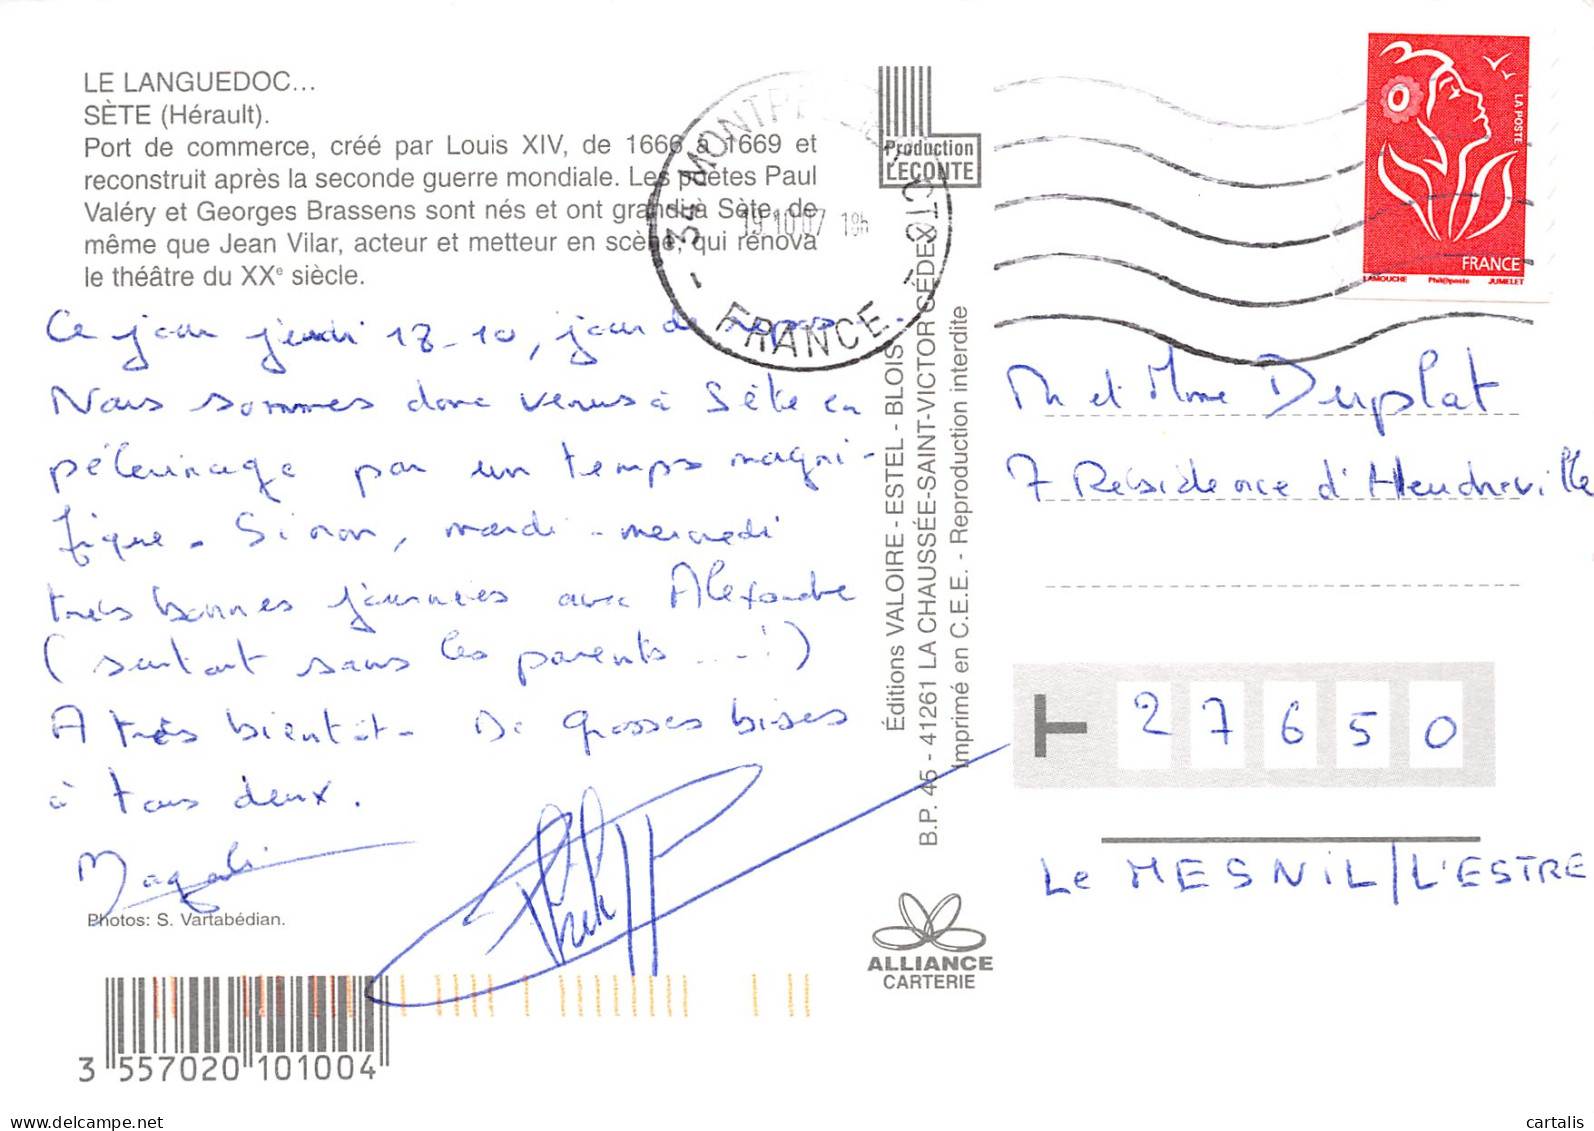 LE LANGUEDOC...
SÈTE (Hérault).
Port de commerce, créé par Louis XIV, de 1666 à 1669 et
reconstruit après la seconde guerre mondiale. Les poètes Paul
Valéry et Georges Brassens sont nés et ont grandi à Sète, de
même que Jean Vilar, acteur et metteur en scène, qui rénova
le théâtre du XXe siècle.
Ce jour jeudi 18-10, jour de
Nous sommes donc venus à Sète en
pélerinage par un temps magni-
fique. Sinon, mardi - mercredi
très bonnes journées avec Alexandre
(surtout sans les parents ...!)
A très bientôt. De grosses bises
à tous deux.
Magali
Photos: S. Vartabédian.
3 557020 101004
34 MONTPELLIER CTC
19 10 07 19h
- FRANCE -
Production
LECONTE
Éditions VALOIRE - ESTEL - BLOIS
B.P. 45 - 41261 LA CHAUSSÉE-SAINT-VICTOR CEDEX
Imprimé en C.E.E. - Reproduction interdite
ALLIANCE
CARTERIE
LA POSTE
FRANCE
LAMOUCHE Phil@poste JUMELET
M et Mme Duplat
7 Résidence d'Heudreville
27650
Le MESNIL/L'ESTRE
delcampe.net
cartalis